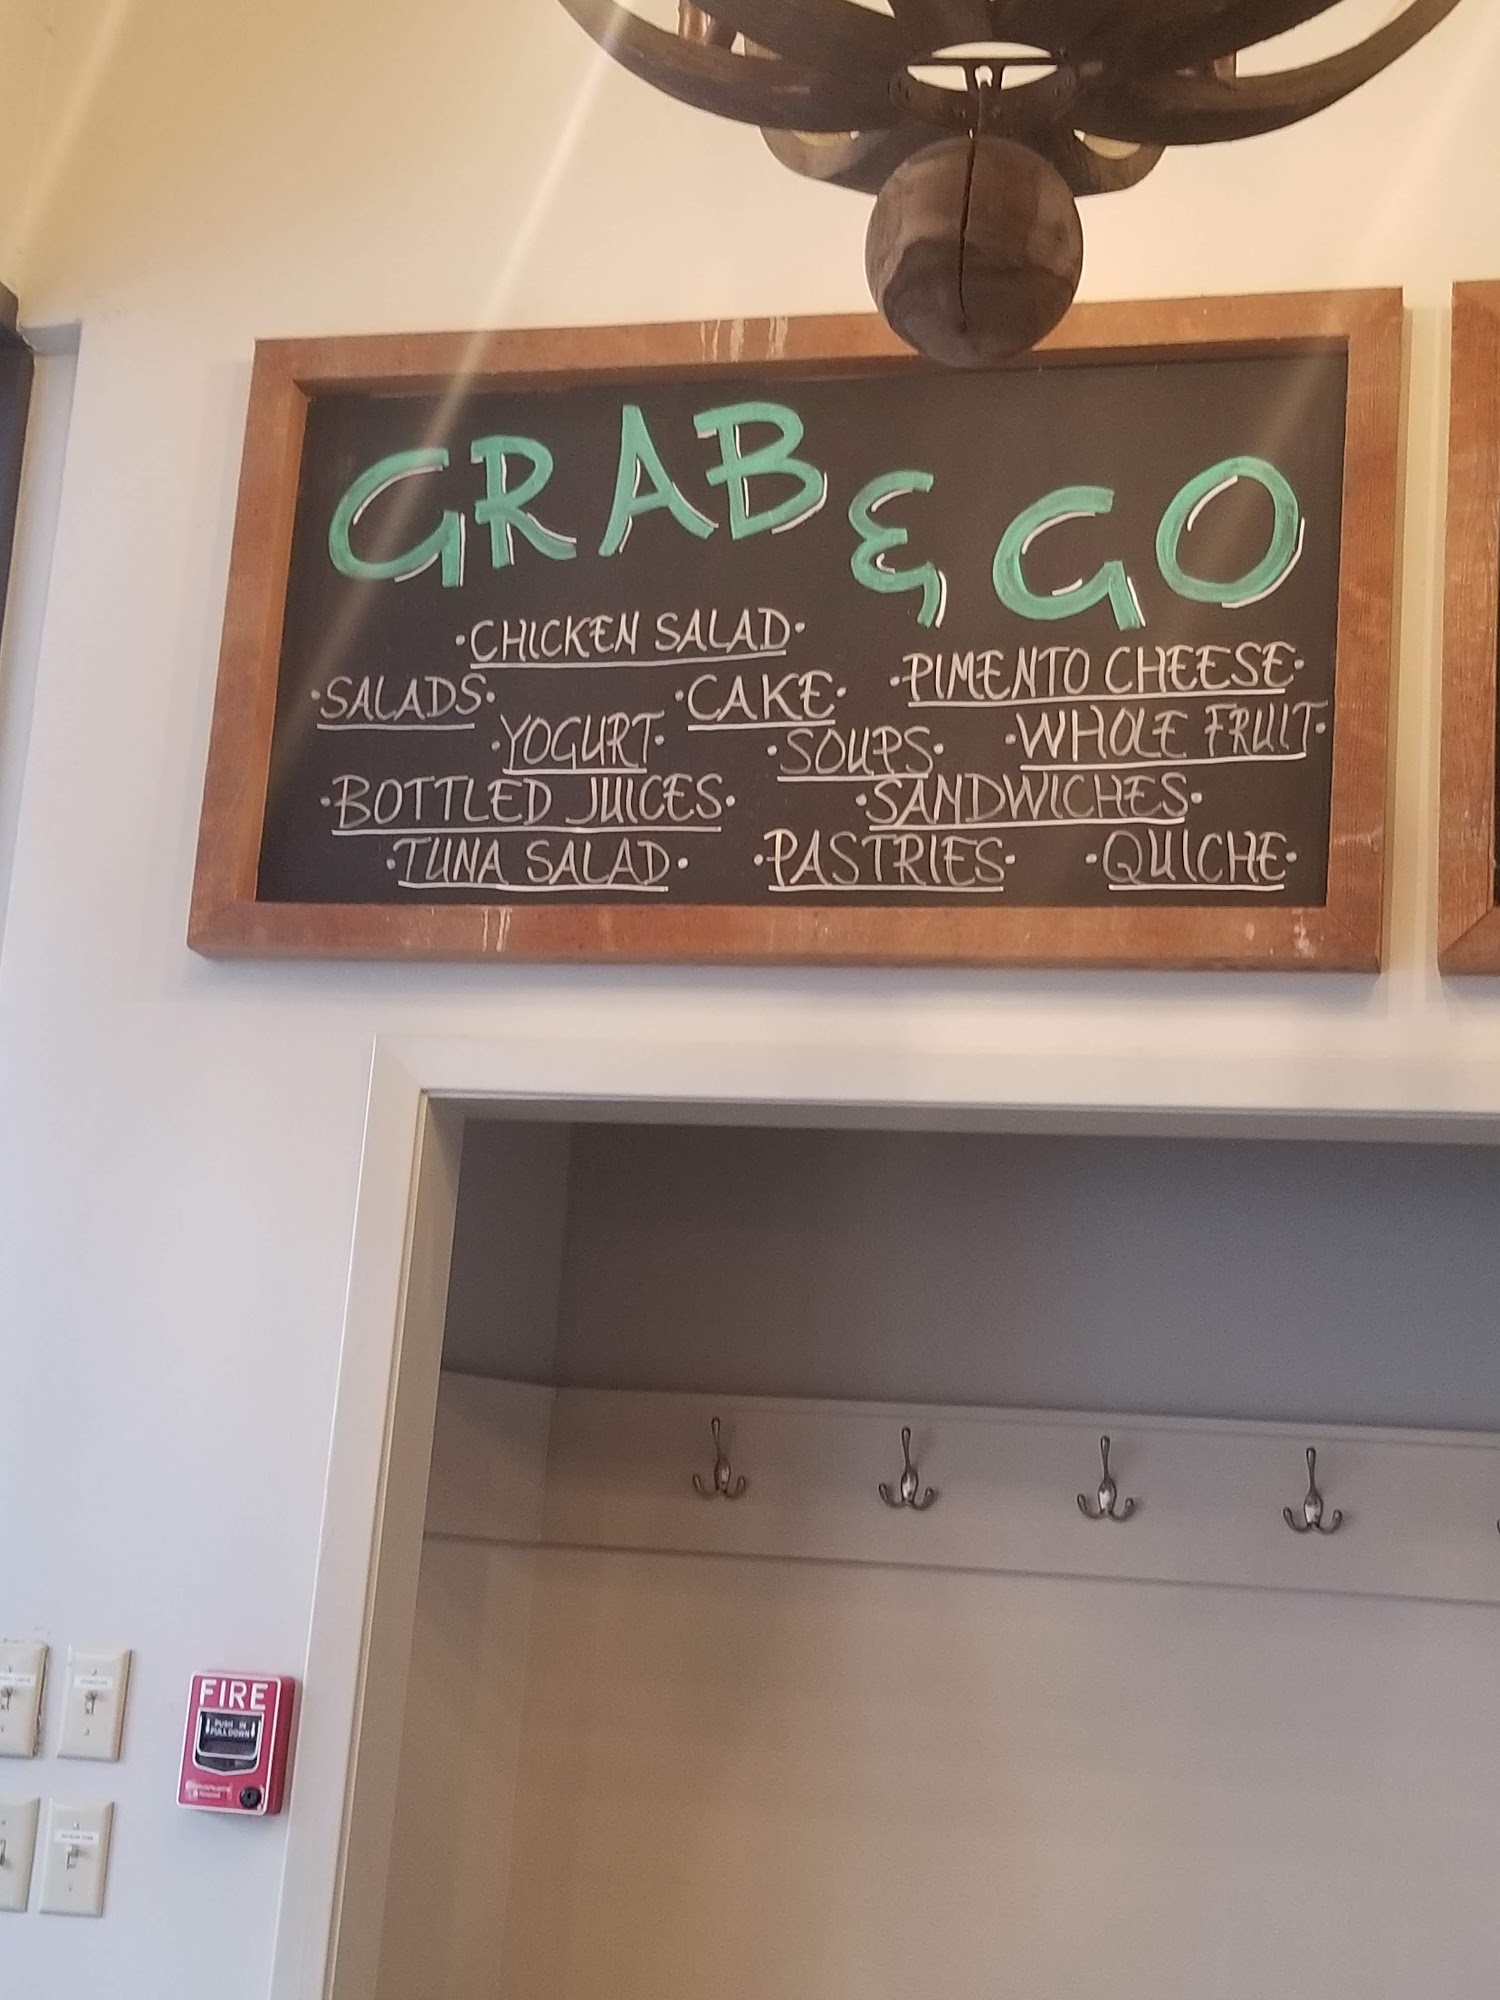 GRAB & GO
·CHICKEN SALAD·
·SALADS· ·CAKE· ·PIMENTO CHEESE·
·YOGURT· ·SOUPS· ·WHOLE FRUIT·
·BOTTLED JUICES· ·SANDWICHES·
·TUNA SALAD· ·PASTRIES· ·QUICHE·
FIRE
PUSH IN
PULL DOWN